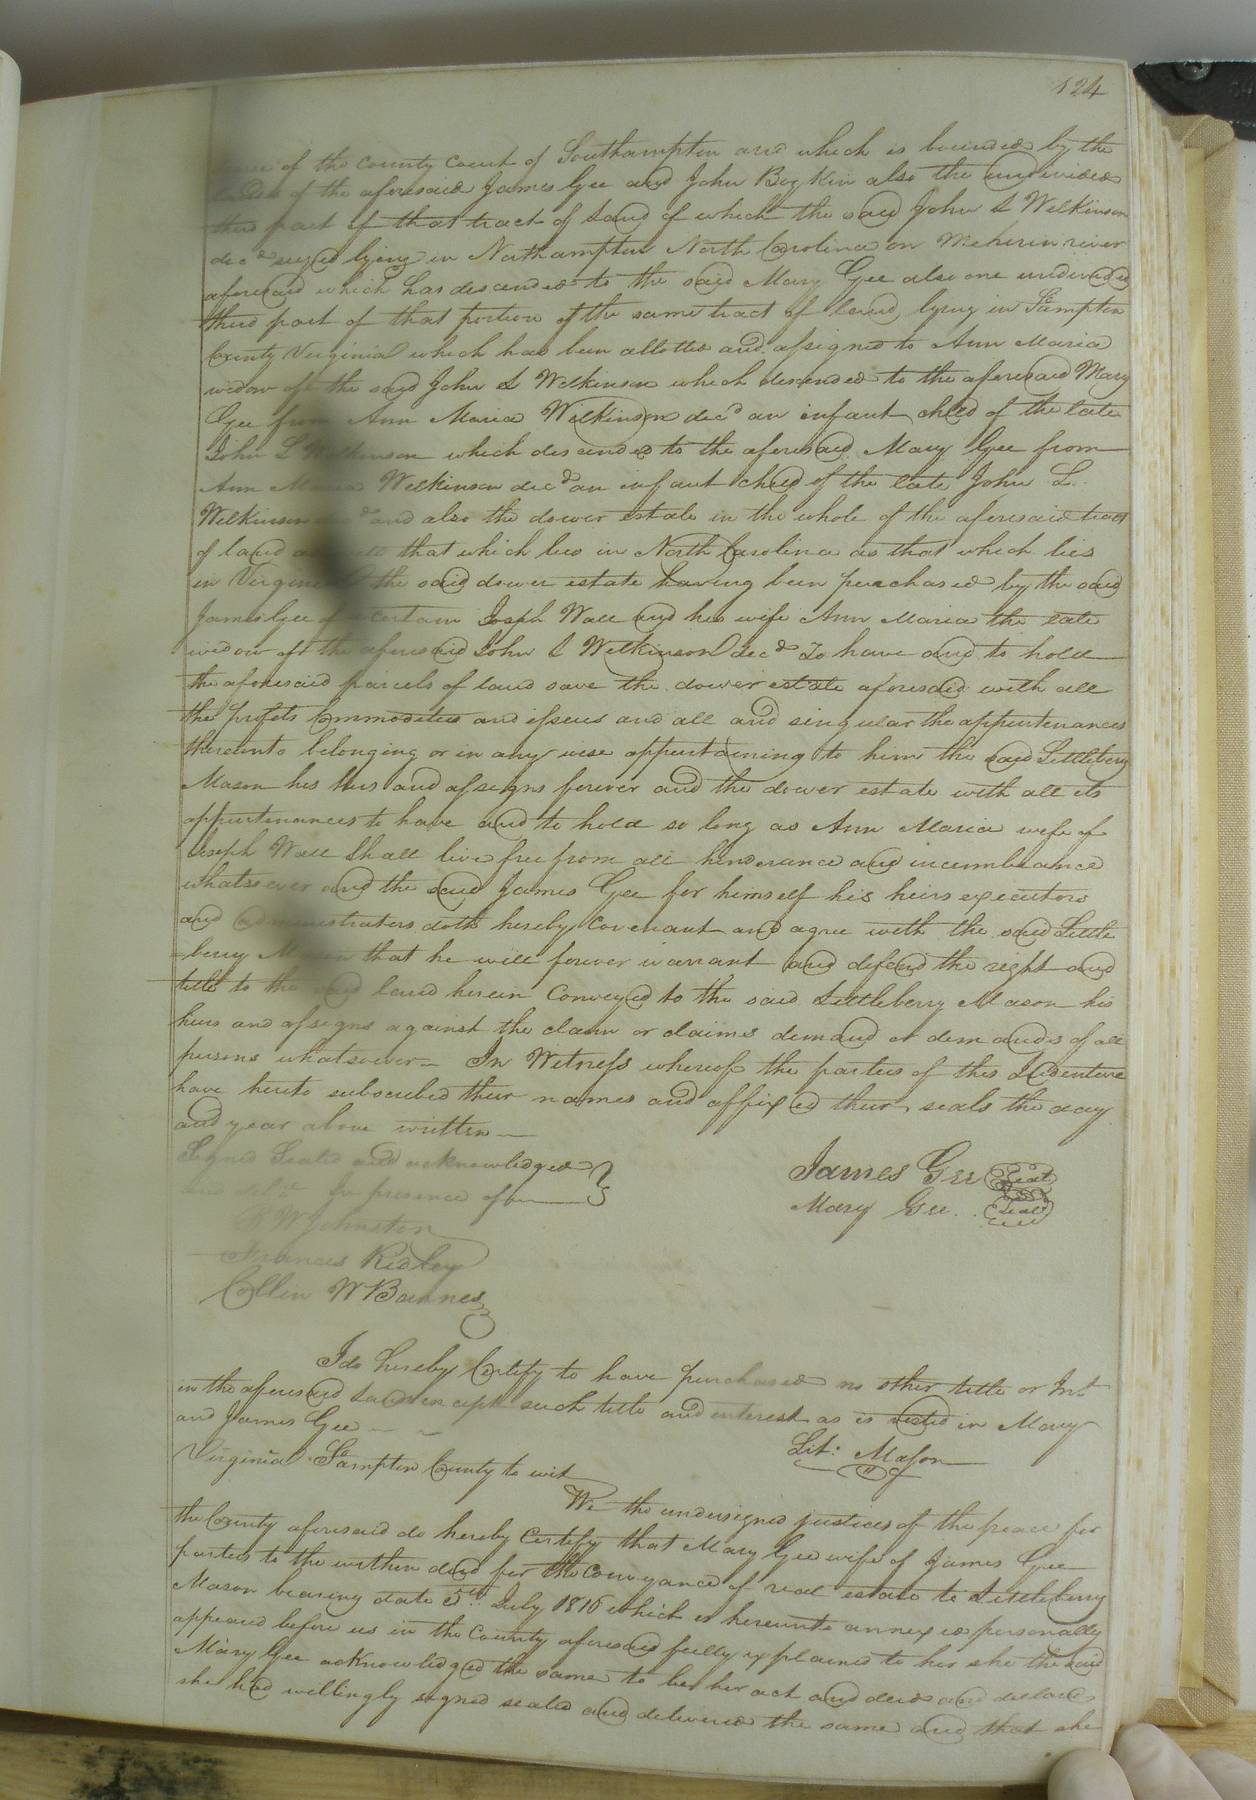 124
of the county court of Southampton and which is bounded by the
of the aforesaid James Gee and John Boykin also the undivided
third part of that tract of Land of which the said John L Wilkinson
decd seized lying in Northampton North Carolina on Meherin river
aforesaid which has descended to the said Mary Gee also one undivided
third part of that portion of the same tract of land lying in Sthampton
County Virginia which has been allotted and assigned to Ann Maria
widow of the said John L Wilkinson which descended to the aforesaid Mary
Gee from Ann Maria Wilkinson decd an infant child of the late
John L Wilkinson which descended to the aforesaid Mary Gee from
Ann Maria Wilkinson decd an infant child of the late John L.
Wilkinson decd and also the dower estate in the whole of the aforesaid tract
of land as well that which lies in North Carolina as that which lies
in Virginia the said dower estate having been purchased by the said
James Gee of certain Joseph Wall and his wife Ann Maria the late
widow of the aforesaid John L Wilkinson decd To have and to hold
the aforesaid parcels of land save the dower estate aforesaid with all
the profits Commodities and issues and all and singular the appurtenances
thereunto belonging or in any wise appurtaining to him the said Littlebery
Mason his heirs and assigns forever and the dower estate with all its
appurtenances to have and to hold so long as Ann Maria wife of
Joseph Wall Shall live free from all hinderance and incumbrance
whatsoever and the said James Gee for himself his heirs executors
and administrators doth hereby Covenant and agree with the said Little
-berry Mason that he will forever warrant and defend the right and
title to the said land herein Conveyed to the said Littleberry Mason his
heirs and assigns against the claim or claims demand or demands of all
persons whatsoever - In Witness whereof the parties of this Indenture
have hereto subscribed their names and affixed their seals the day
and year above written -
Signed Sealed and acknowledged }
and deld In presence of
James Gee Seal
Mary Gee. Seal
Johnston
Francis Ridley
Collin W Barnes
I do hereby Certify to have purchased no other title or Int
in the aforesaid Land except such title and interest as is vested in Mary
and James Gee - -
Lit: Mason
Virginia Sthampton County to wit
We the undersigned justices of the peace for
the County aforesaid do hereby Certify that Mary Gee wife of James Gee
parties to the within deed for the Conveyance of real estate to Littleberry
Mason bearing date 5th July 1816 which is hereunto annexed personally
appeared before us in the County aforesaid fully explained to her she the said
Mary Gee acknowledged the same to be her act and deed and declared
she had willingly signed sealed and delivered the same and that she